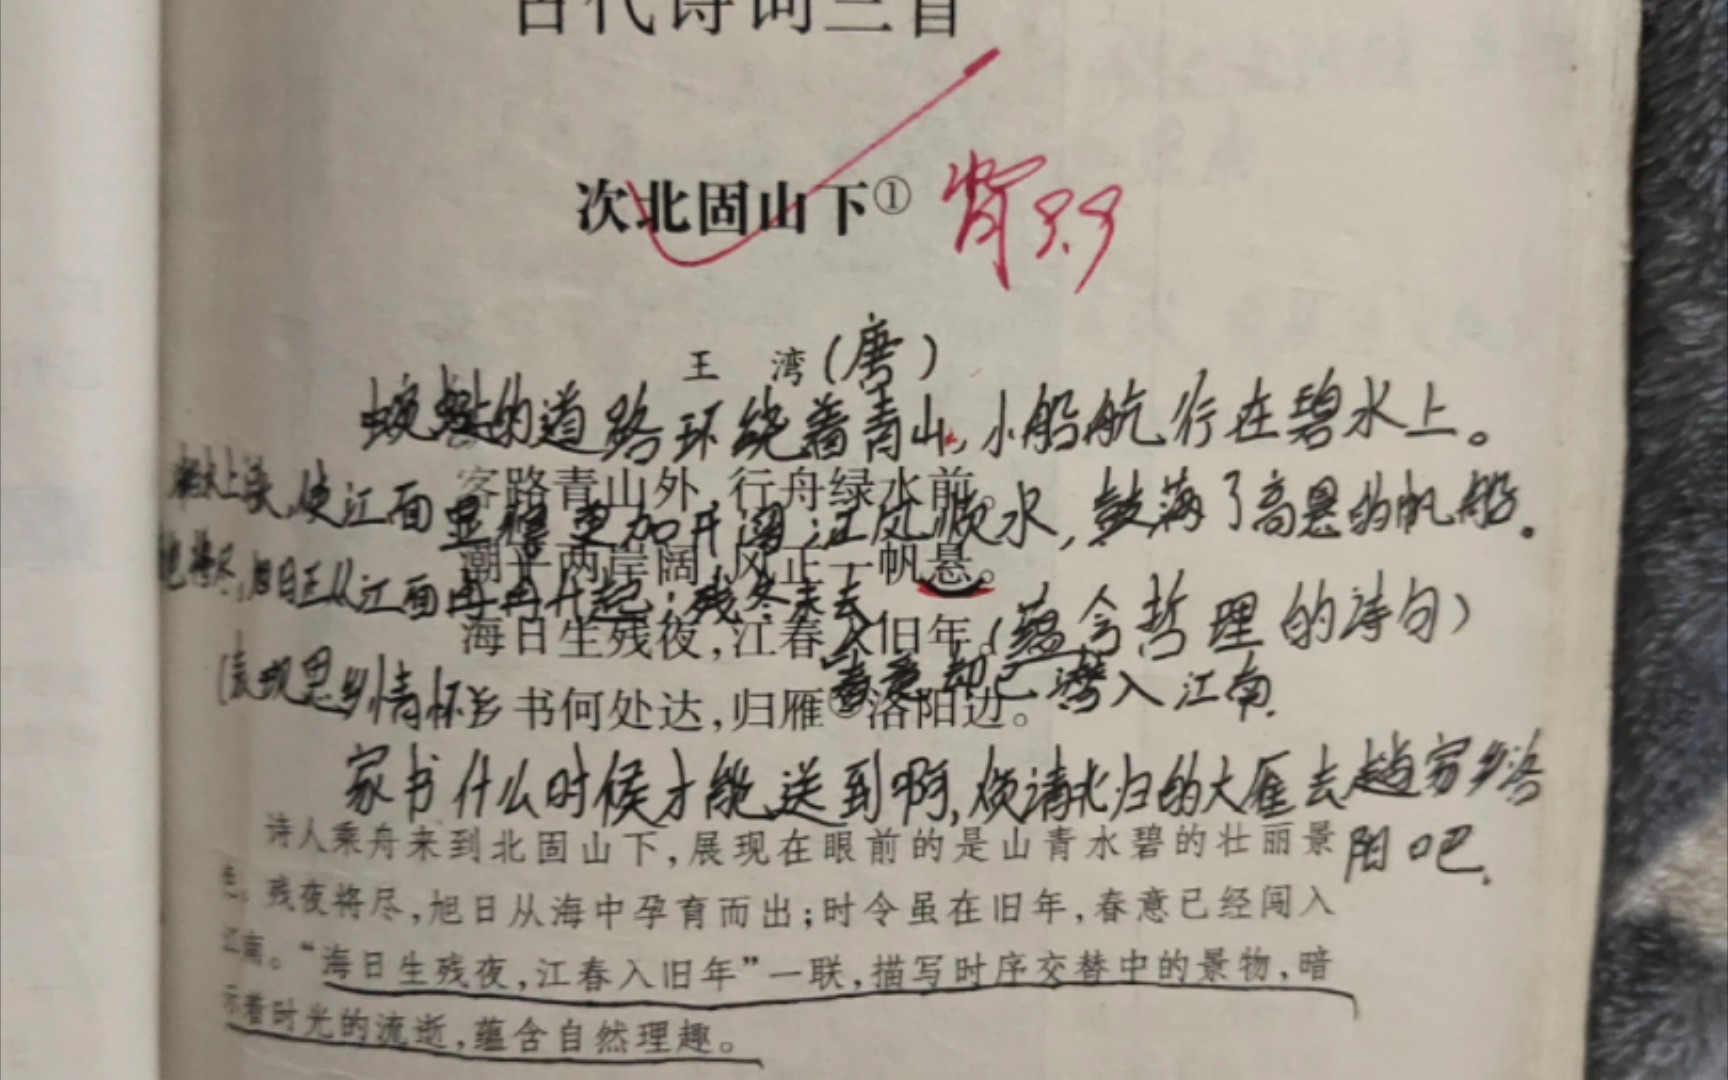 古代诗词三首
次北固山下① 背 3.9
王 湾(唐)
蜿蜒的道路环绕着青山,小船航行在碧水上。
客路青山外,行舟绿水前。
水上涨,使江面显得更加开阔;江风顺水,鼓满了高悬的帆船。
潮平两岸阔,风正一帆悬。
将尽,旭日正从江面冉冉升起;残冬未去
海日生残夜,江春入旧年。(蕴含哲理的诗句)
春意却已潜入江南.
(表现思乡情怀)乡书何处达,归雁洛阳边。
家书什么时候才能送到啊,烦请北归的大雁去趟家乡洛
阳吧.
诗人乘舟来到北固山下,展现在眼前的是山青水碧的壮丽景
色。残夜将尽,旭日从海中孕育而出;时令虽在旧年,春意已经闯入
江南。“海日生残夜,江春入旧年”一联,描写时序交替中的景物,暗
示着时光的流逝,蕴含自然理趣。